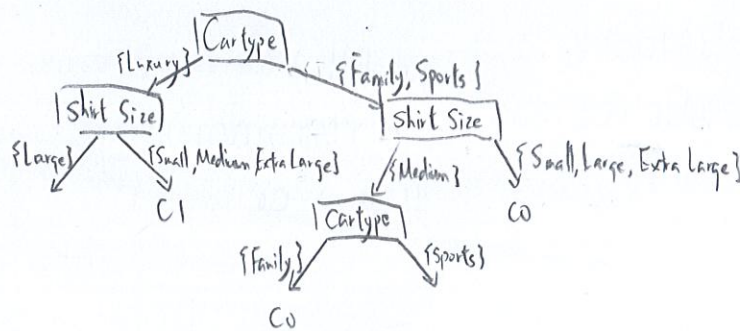 Cartype
{Luxury} {Family, Sports}
Shirt Size Shirt Size
{Large} {Small, Medium, Extra Large} {Medium} {Small, Large, Extra Large}
C1 Cartype C0
{Family} {Sports}
C0